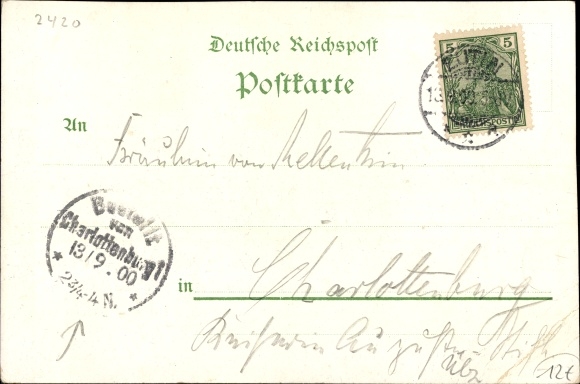 2420
Deutsche Reichspost
Postkarte
5 5
REICHSPOST
13.9.00
An
Fräulein von Mellenthin
Bestellt
von
Charlottenburg 1
13/9.00
2¾-4 N.
in
Charlottenburg
Kaiserin Augusta Stift
12€